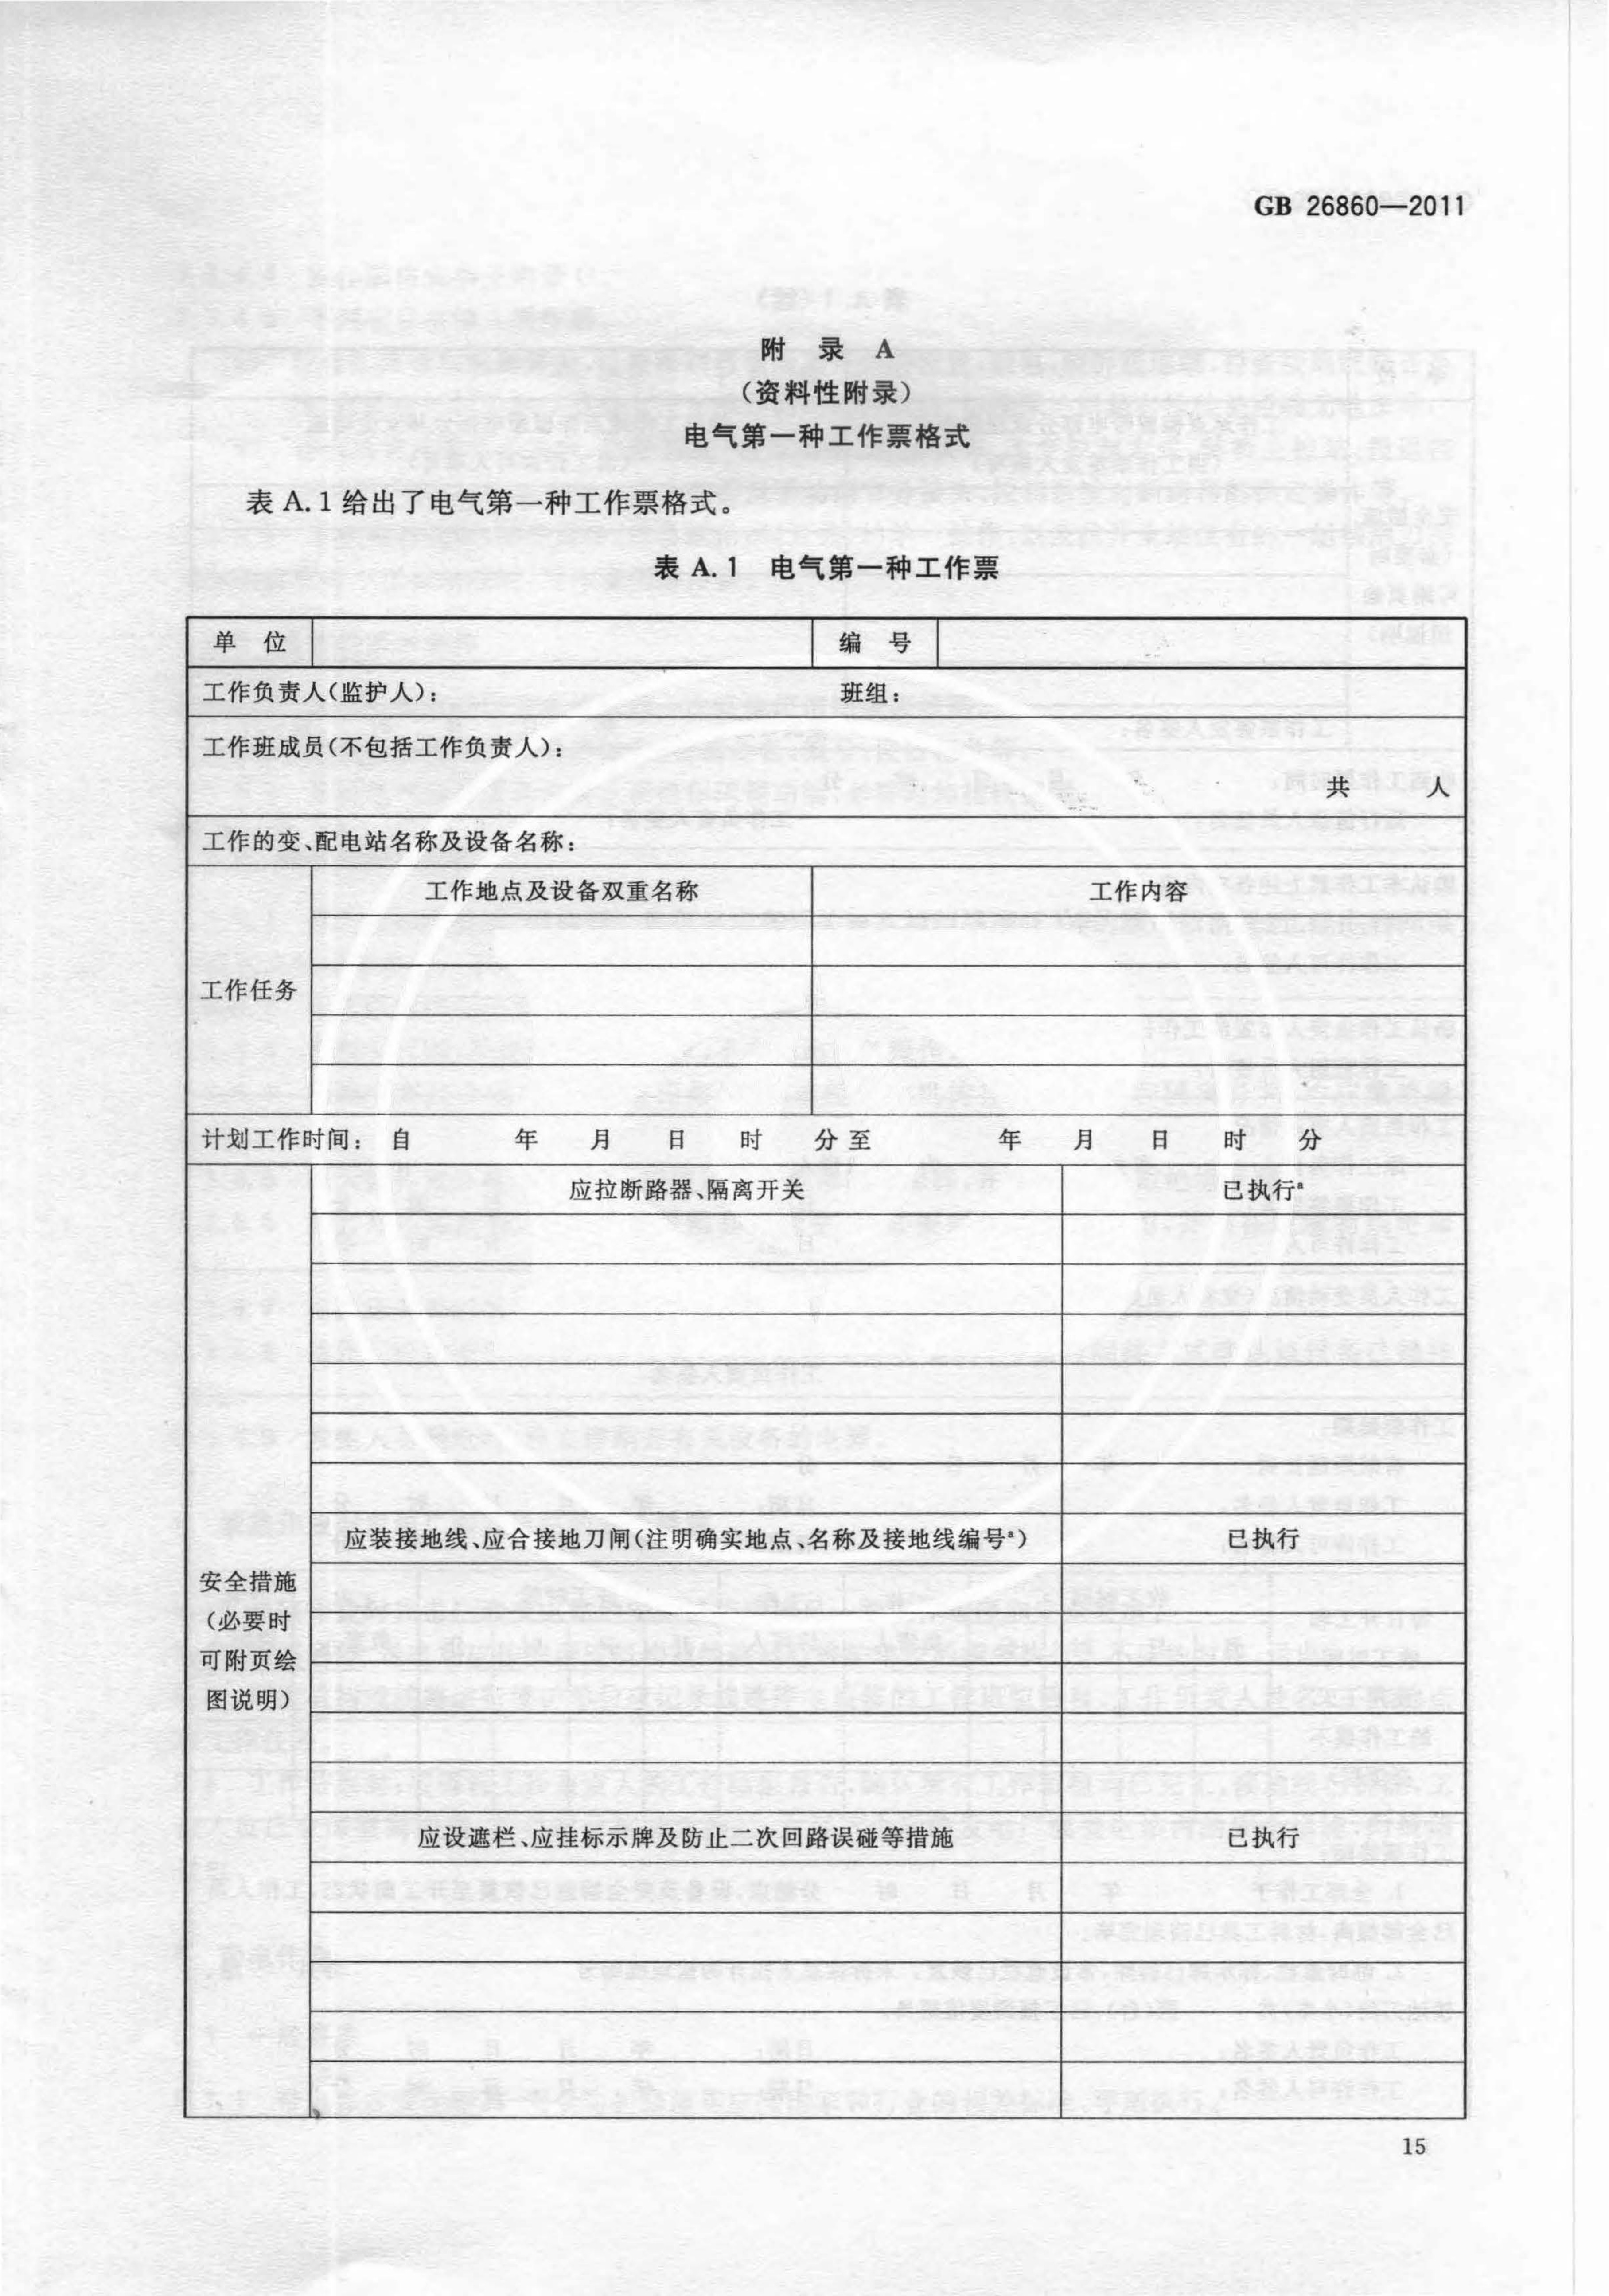 GB 26860—2011
附 录 A
(资料性附录)
电气第一种工作票格式
表 A.1 给出了电气第一种工作票格式。
表 A.1 电气第一种工作票
单 位 编 号
工作负责人(监护人): 班组:
工作班成员(不包括工作负责人):
共 人
工作的变、配电站名称及设备名称:
工作地点及设备双重名称 工作内容
工作任务
计划工作时间: 自 年 月 日 时 分 至 年 月 日 时 分
应拉断路器、隔离开关 已执行ᵃ
应装接地线、应合接地刀闸(注明确实地点、名称及接地线编号ᵃ) 已执行
安全措施
(必要时
可附页绘
图说明)
应设遮栏、应挂标示牌及防止二次回路误碰等措施 已执行
15